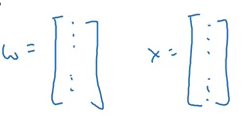 ω = [⋮ ⋮] x = [⋮ ⋮]